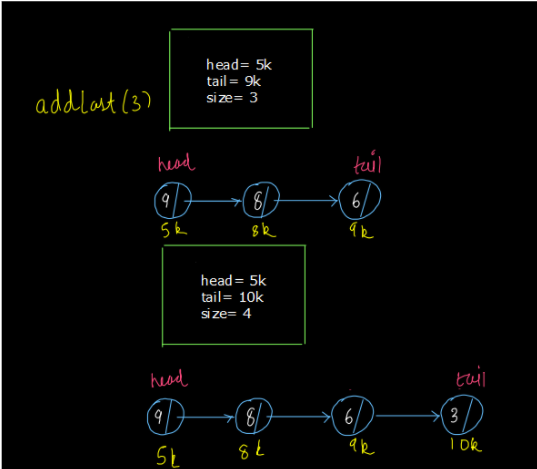 head= 5k
tail= 9k
size= 3
addLast(3)
head tail
9/ 8/ 6/
5k 8k 9k
head= 5k
tail= 10k
size= 4
head tail
9/ 8/ 6/ 3/
5k 8k 9k 10k